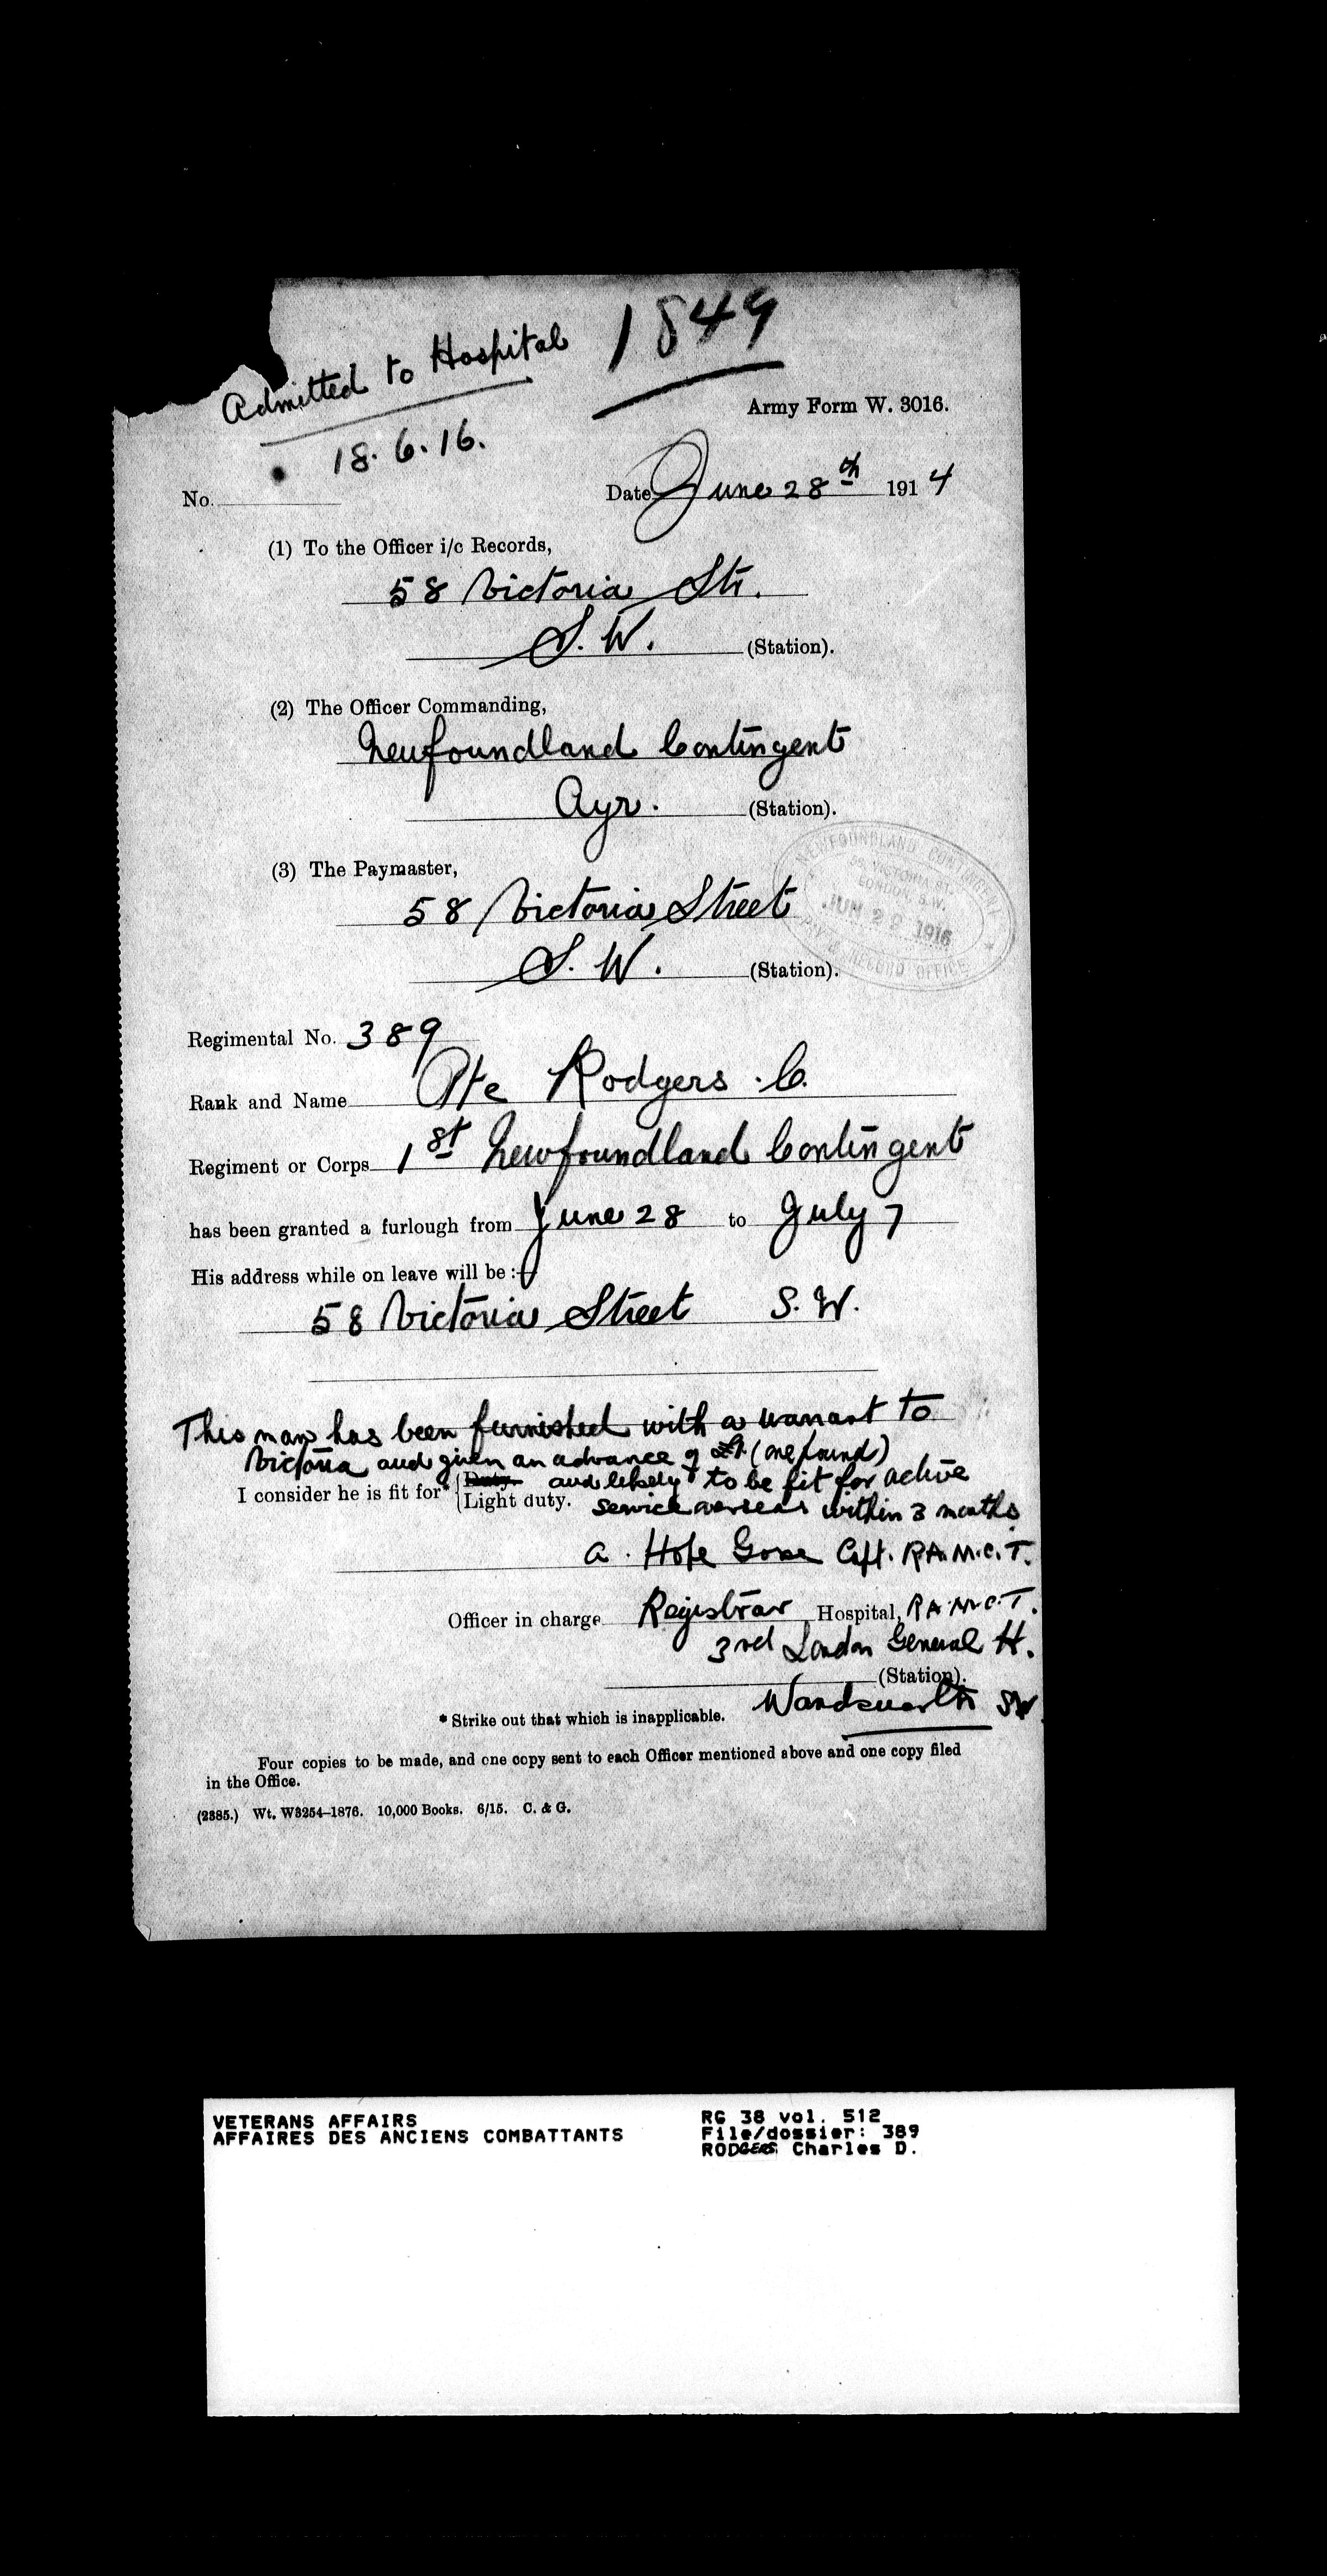 1849
Admitted to Hospital
18.6.16.
Army Form W. 3016.
No.
Date June 28th 1914
(1) To the Officer i/c Records,
58 Victoria Str.
S.W. (Station).
(2) The Officer Commanding,
Newfoundland Contingent
Ayr. (Station).
(3) The Paymaster,
58 Victoria Street
S.W. (Station).
NEWFOUNDLAND CONTINGENT
VICTORIA ST.
LONDON, S.W.
JUN 29 1916
PAY & RECORD OFFICE
Regimental No. 389
Rank and Name Pte Rodgers . C.
Regiment or Corps 1st Newfoundland Contingent
has been granted a furlough from June 28 to July 7
His address while on leave will be :—
58 Victoria Street S.W.
This man has been furnished with a warrant to
Victoria and given an advance of £1 (one pound)
I consider he is fit for* Duty. and likely to be fit for active
Light duty. service overseas within 3 months
A. Hope Gosse Capt. R.A.M.C.T.
Officer in charge Registrar Hospital, R.A.M.C.T.
3rd London General H.
(Station).
Wandsworth SW.
* Strike out that which is inapplicable.
Four copies to be made, and one copy sent to each Officer mentioned above and one copy filed
in the Office.
(2385.) Wt. W3254–1876. 10,000 Books. 6/15. C. & G.
VETERANS AFFAIRS
AFFAIRES DES ANCIENS COMBATTANTS
RG 38 vol. 512
File/dossier: 389
RODGERS, Charles D.